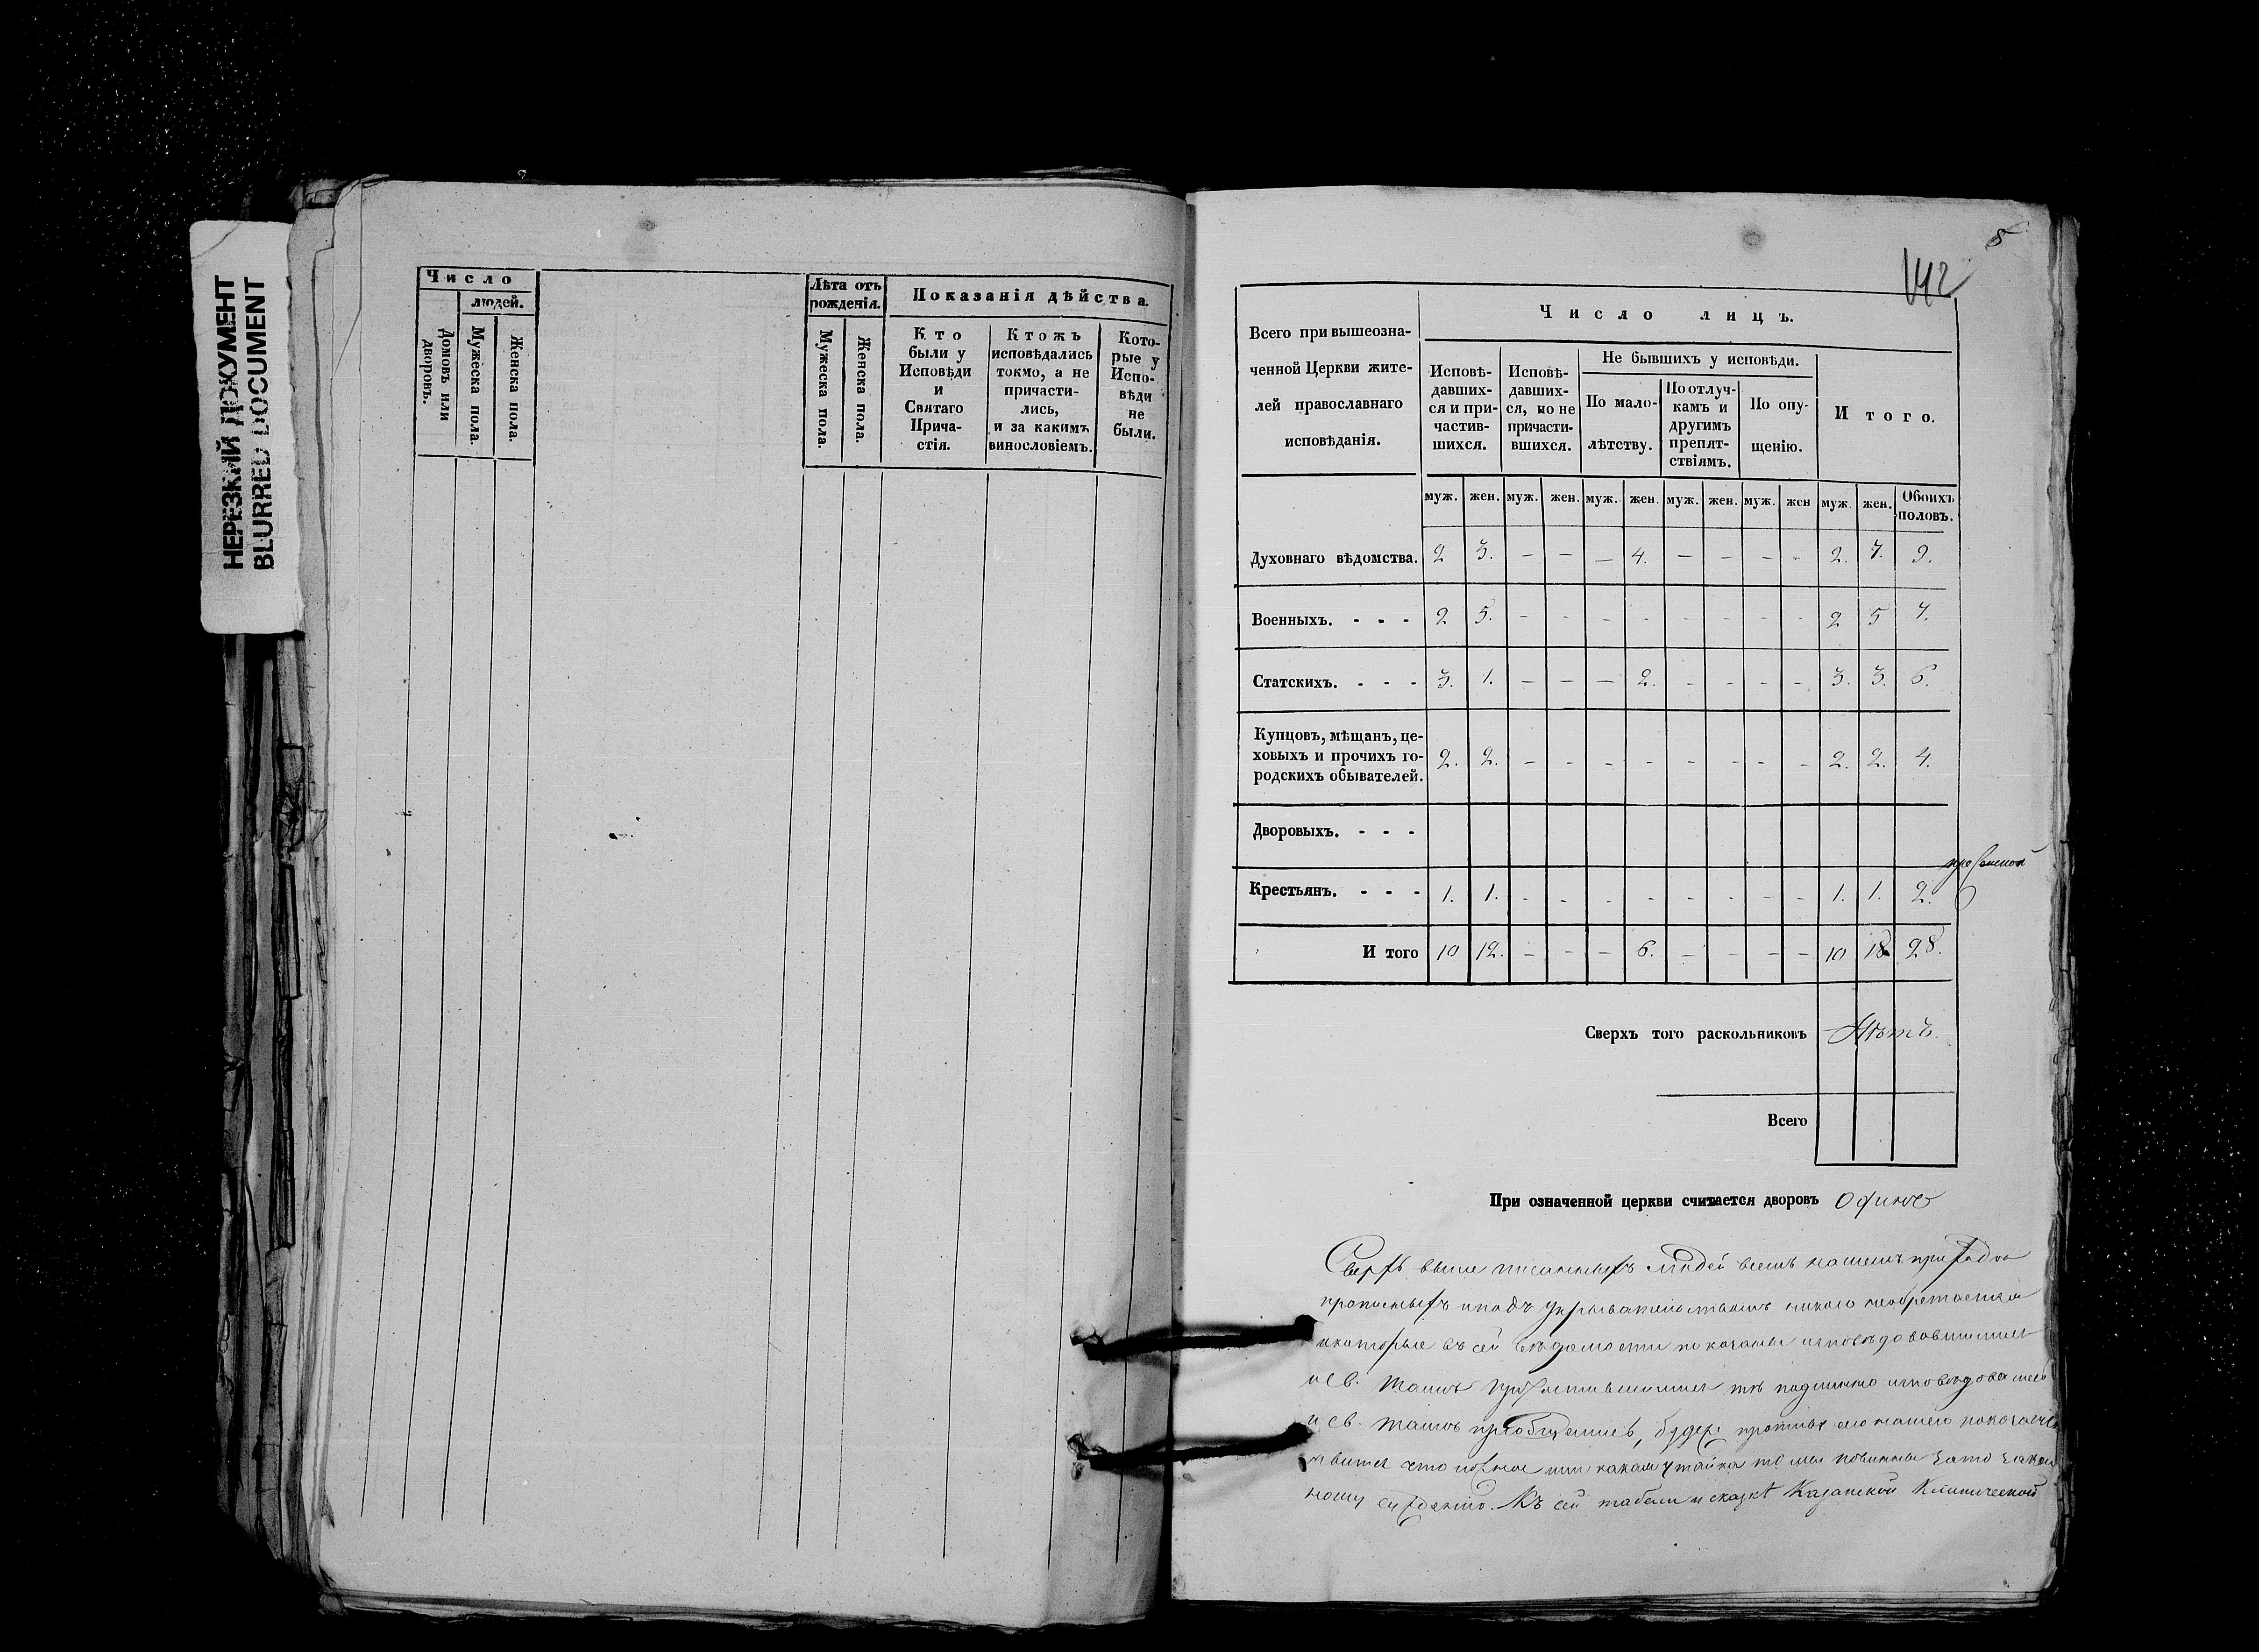 НЕРЕЗКИЙ ДОКУМЕНТ
BLURRED DOCUMENT
Число
людей.
Домовъ или дворовъ.
Мужеска пола.
Женска пола.
Лѣта отъ рожденія.
Мужеска пола.
Женска пола.
Показанія дѣйства.
Кто были у Исповѣди и Святаго Причастія.
Ктожъ исповѣдались токмо, а не причастились, и за какимъ винословіемъ.
Которые у Исповѣди не были.
5
142
Всего при вышеозначенной Церкви жителей православнаго исповѣданія.
Число лицъ.
Исповѣдавшихся и причастившихся.
Исповѣдавшихся, но не причастившихся.
Не бывшихъ у исповѣди.
По малолѣтству.
По отлучкамъ и другимъ препятствіямъ.
По опущенію.
Итого.
муж. жен. муж. жен. муж. жен. муж. жен. муж. жен муж. жен. Обоихъ половъ.
Духовнаго вѣдомства. 2 3. – – – 4. – – – – 2. 7. 9.
Военныхъ. - - - 2 5. – – – – – – – – 2 5 7.
Статскихъ. - - - 3. 1. – – – 2. – – – – 3. 3. 6.
Купцовъ, мѣщанъ, цеховыхъ и прочихъ городскихъ обывателей. 2. 2. – – – – – – – – 2. 2. 4.
Дворовыхъ. - - -
Крестьянъ. - - - 1. 1. – – – – – – – – 1. 1. 2.
И того 10 12. – – – 6. – – – – 10 18 28.
Сверхъ того раскольниковъ Нѣтъ.
Всего
При означенной церкви считается дворовъ Одинъ
Сверхъ выше писанныхъ людей всемъ нашемъ приходѣ
прописныхъ и подъ укрывательствомъ никого необретается
и которые въ сей вѣдомости показаны исповѣдовавшимися
и св. таинъ причастившимися тѣ подлинно исповѣдовались
и св. таинъ приобщались, будеже противъ сего нашего показанія
явится что ложное или какая утайка то мы повинны зато закон
ному сужденію. Къ сей табели и сказкѣ Казанской Клинической